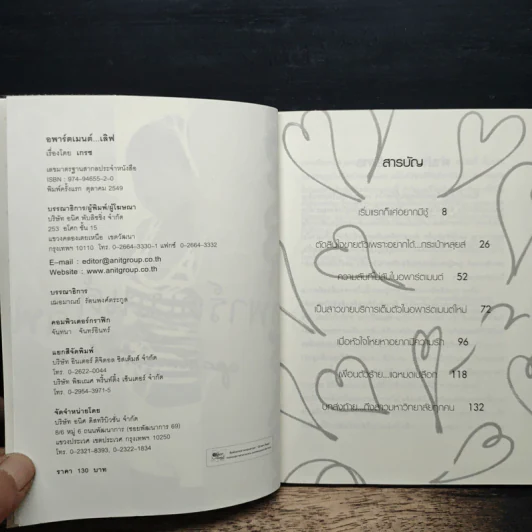 อพาร์ตเมนต์...เลิฟ
เรื่องโดย เกรซ
เลขมาตรฐานสากลประจำหนังสือ
ISBN : 974-94655-2-0
พิมพ์ครั้งแรก ตุลาคม 2549
บรรณาธิการ/ผู้พิมพ์/ผู้โฆษณา
บริษัท อนิต พับลิชชิ่ง จำกัด
253 อโศก ชั้น 15
แขวงคลองเตยเหนือ เขตวัฒนา
กรุงเทพฯ 10110 โทร. 0-2664-3330-1 แฟกซ์ 0-2664-3332
E-mail : editor@anitgroup.co.th
Website : www.anitgroup.co.th
บรรณาธิการ
เฌอมาณย์ รัตนพงศ์ตระกูล
คอมพิวเตอร์กราฟิก
จันทนา จันทร์อินทร์
แยกสีจัดพิมพ์
บริษัท อินเตอร์ ดิจิตอล ซิสเต็มส์ จำกัด
โทร. 0-2622-0044
บริษัท พิฆเณศ พริ้นท์ติ้ง เซ็นเตอร์ จำกัด
โทร. 0-2954-3971-5
จัดจำหน่ายโดย
บริษัท อนิต ดิสทริบิวชั่น จำกัด
8/6 หมู่ 6 ถนนพัฒนาการ (ซอยพัฒนาการ 69)
แขวงประเวศ เขตประเวศ กรุงเทพฯ 10250
โทร. 0-2321-8393, 0-2322-1634
ราคา 130 บาท
สารบัญ
เริ่มแรกก็แค่อยากมีชู้ 8
ตัดสินใจขายตัวเพราะอยากได้...กระเป๋าหลุยส์ 26
ความลับที่ไม่ลับในอพาร์ตเมนต์ 52
เป็นสาวขายบริการเต็มตัวในอพาร์ตเมนต์ใหม่ 72
เมื่อหัวใจโหยหาอยากมีความรัก 96
เพื่อนตัวร้าย...แฉหมดเปลือก 118
บทส่งท้าย...ถึงสาวมหาวิทยาลัยทุกคน 132